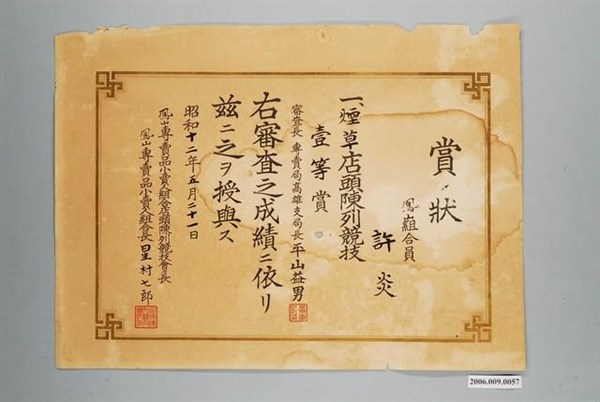 賞狀
鳳山組合員
許炎
一、煙草店頭陳列競技
壹等賞
審查長 專賣局高雄支局長 平山益男
右審查之成績ニ依リ
茲ニ之ヲ授與ス
昭和十二年五月二十一日
鳳山專賣品小賣人組合店頭陳列競技會長
鳳山專賣品小賣人組合長 星村七郎
2006.009.0057